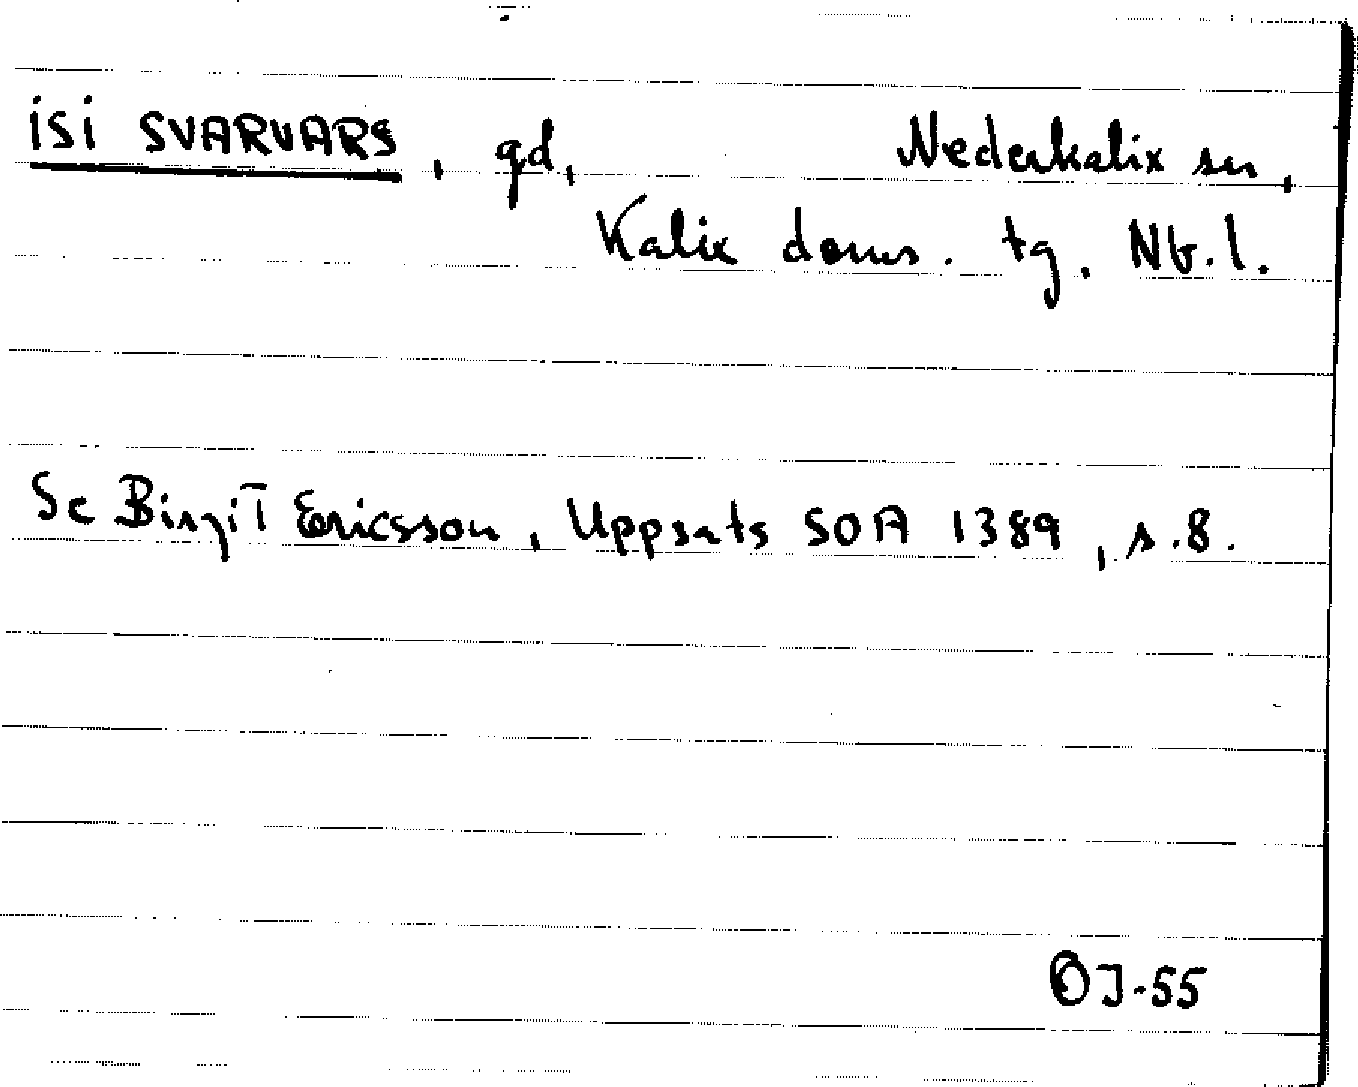 ISI SVARVARS, gd, Nederkalix sn,
Kalix doms. tg. Nb. l.
Se Birgit Ericsson, Uppsats SOA 1389, s. 8.
OJ-55